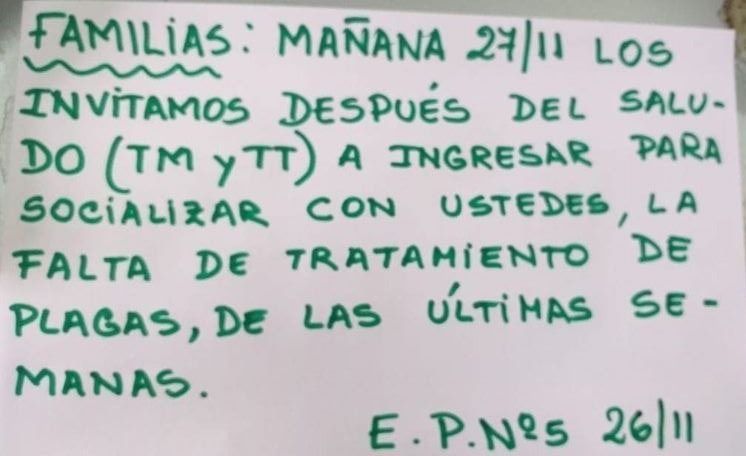 FAMILIAS: MAÑANA 27/11 LOS
INVITAMOS DESPUÉS DEL SALU-
DO (TM y TT) A INGRESAR PARA
SOCIALIZAR CON USTEDES, LA
FALTA DE TRATAMIENTO DE
PLAGAS, DE LAS ÚLTIMAS SE-
MANAS.
E.P.Nº5 26/11